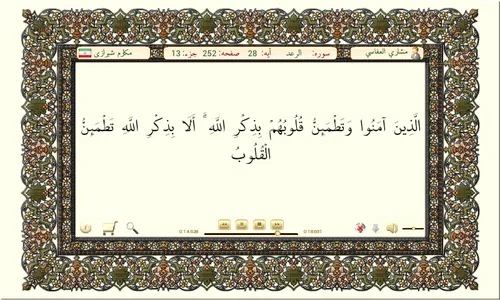 مشاري العفاسي سوره: الرعد آیه: 28 صفحه: 252 جزء: 13 مکارم شیرازی
الَّذِينَ آمَنُوا وَتَطْمَئِنُّ قُلُوبُهُمْ بِذِكْرِ اللَّهِ ۗ أَلَا بِذِكْرِ اللَّهِ تَطْمَئِنُّ
الْقُلُوبُ